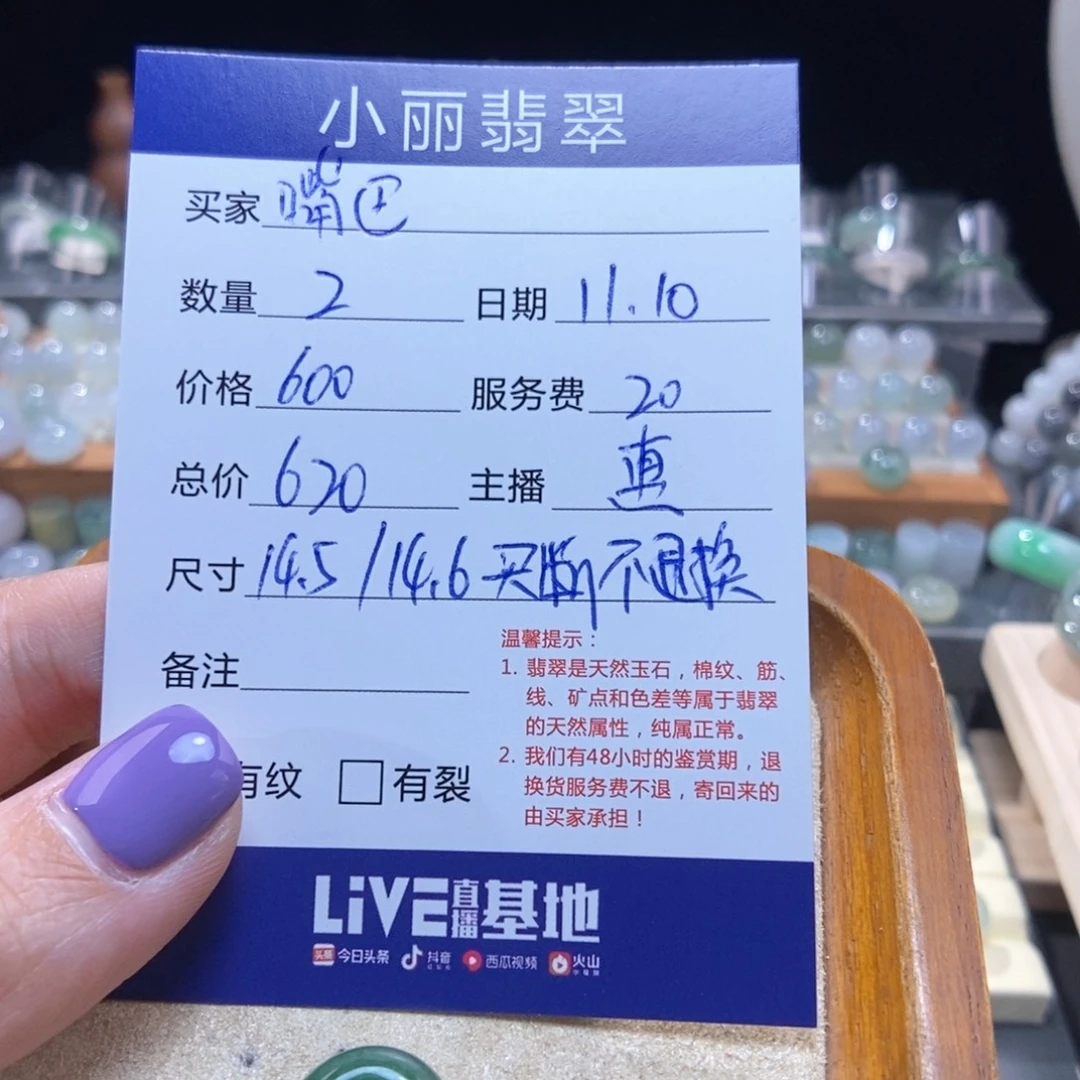 小丽翡翠
买家 嘴巴
数量 2 日期 11.10
价格 600 服务费 20
总价 620 主播
尺寸 14.5/14.6 买断不退换
备注
有纹 有裂
温馨提示：
1. 翡翠是天然玉石，棉纹、筋、
线、矿点和色差等属于翡翠
的天然属性，纯属正常。
2. 我们有48小时的鉴赏期，退
换货服务费不退，寄回来的
由买家承担！
LiVE直播基地
头条 今日头条 抖音 西瓜视频 火山